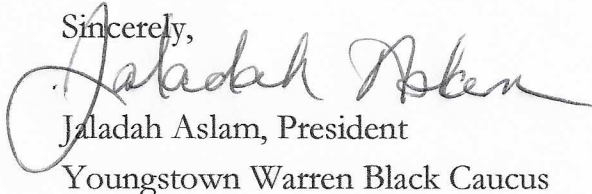 Sincerely,
Jaladah Aslam
Jaladah Aslam, President
Youngstown Warren Black Caucus